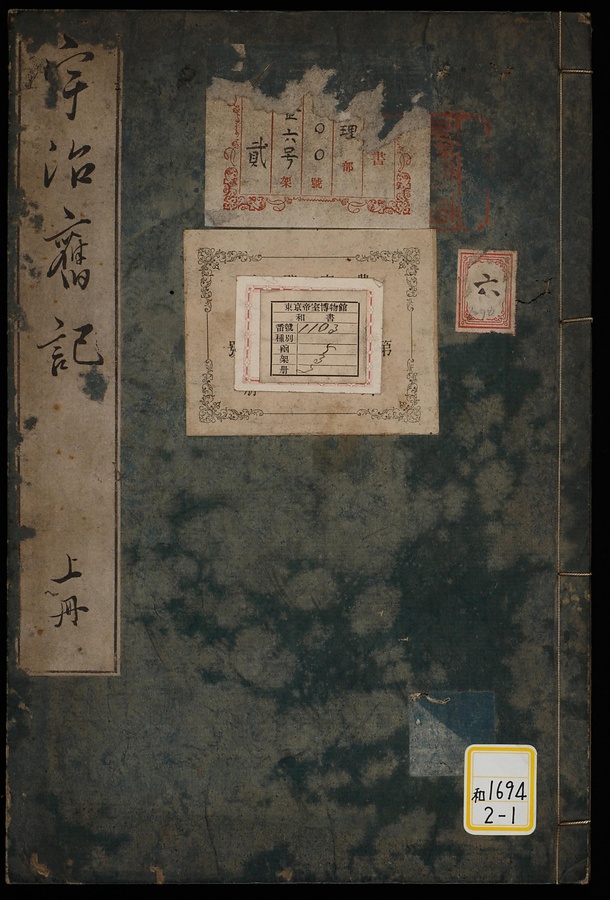 宇治舊記
上冊
書
理部
〇〇號
六号架
貳
第
東京帝室博物館
和書
番號 1103
種別
凾
架 5
册
六
和1694
2-1